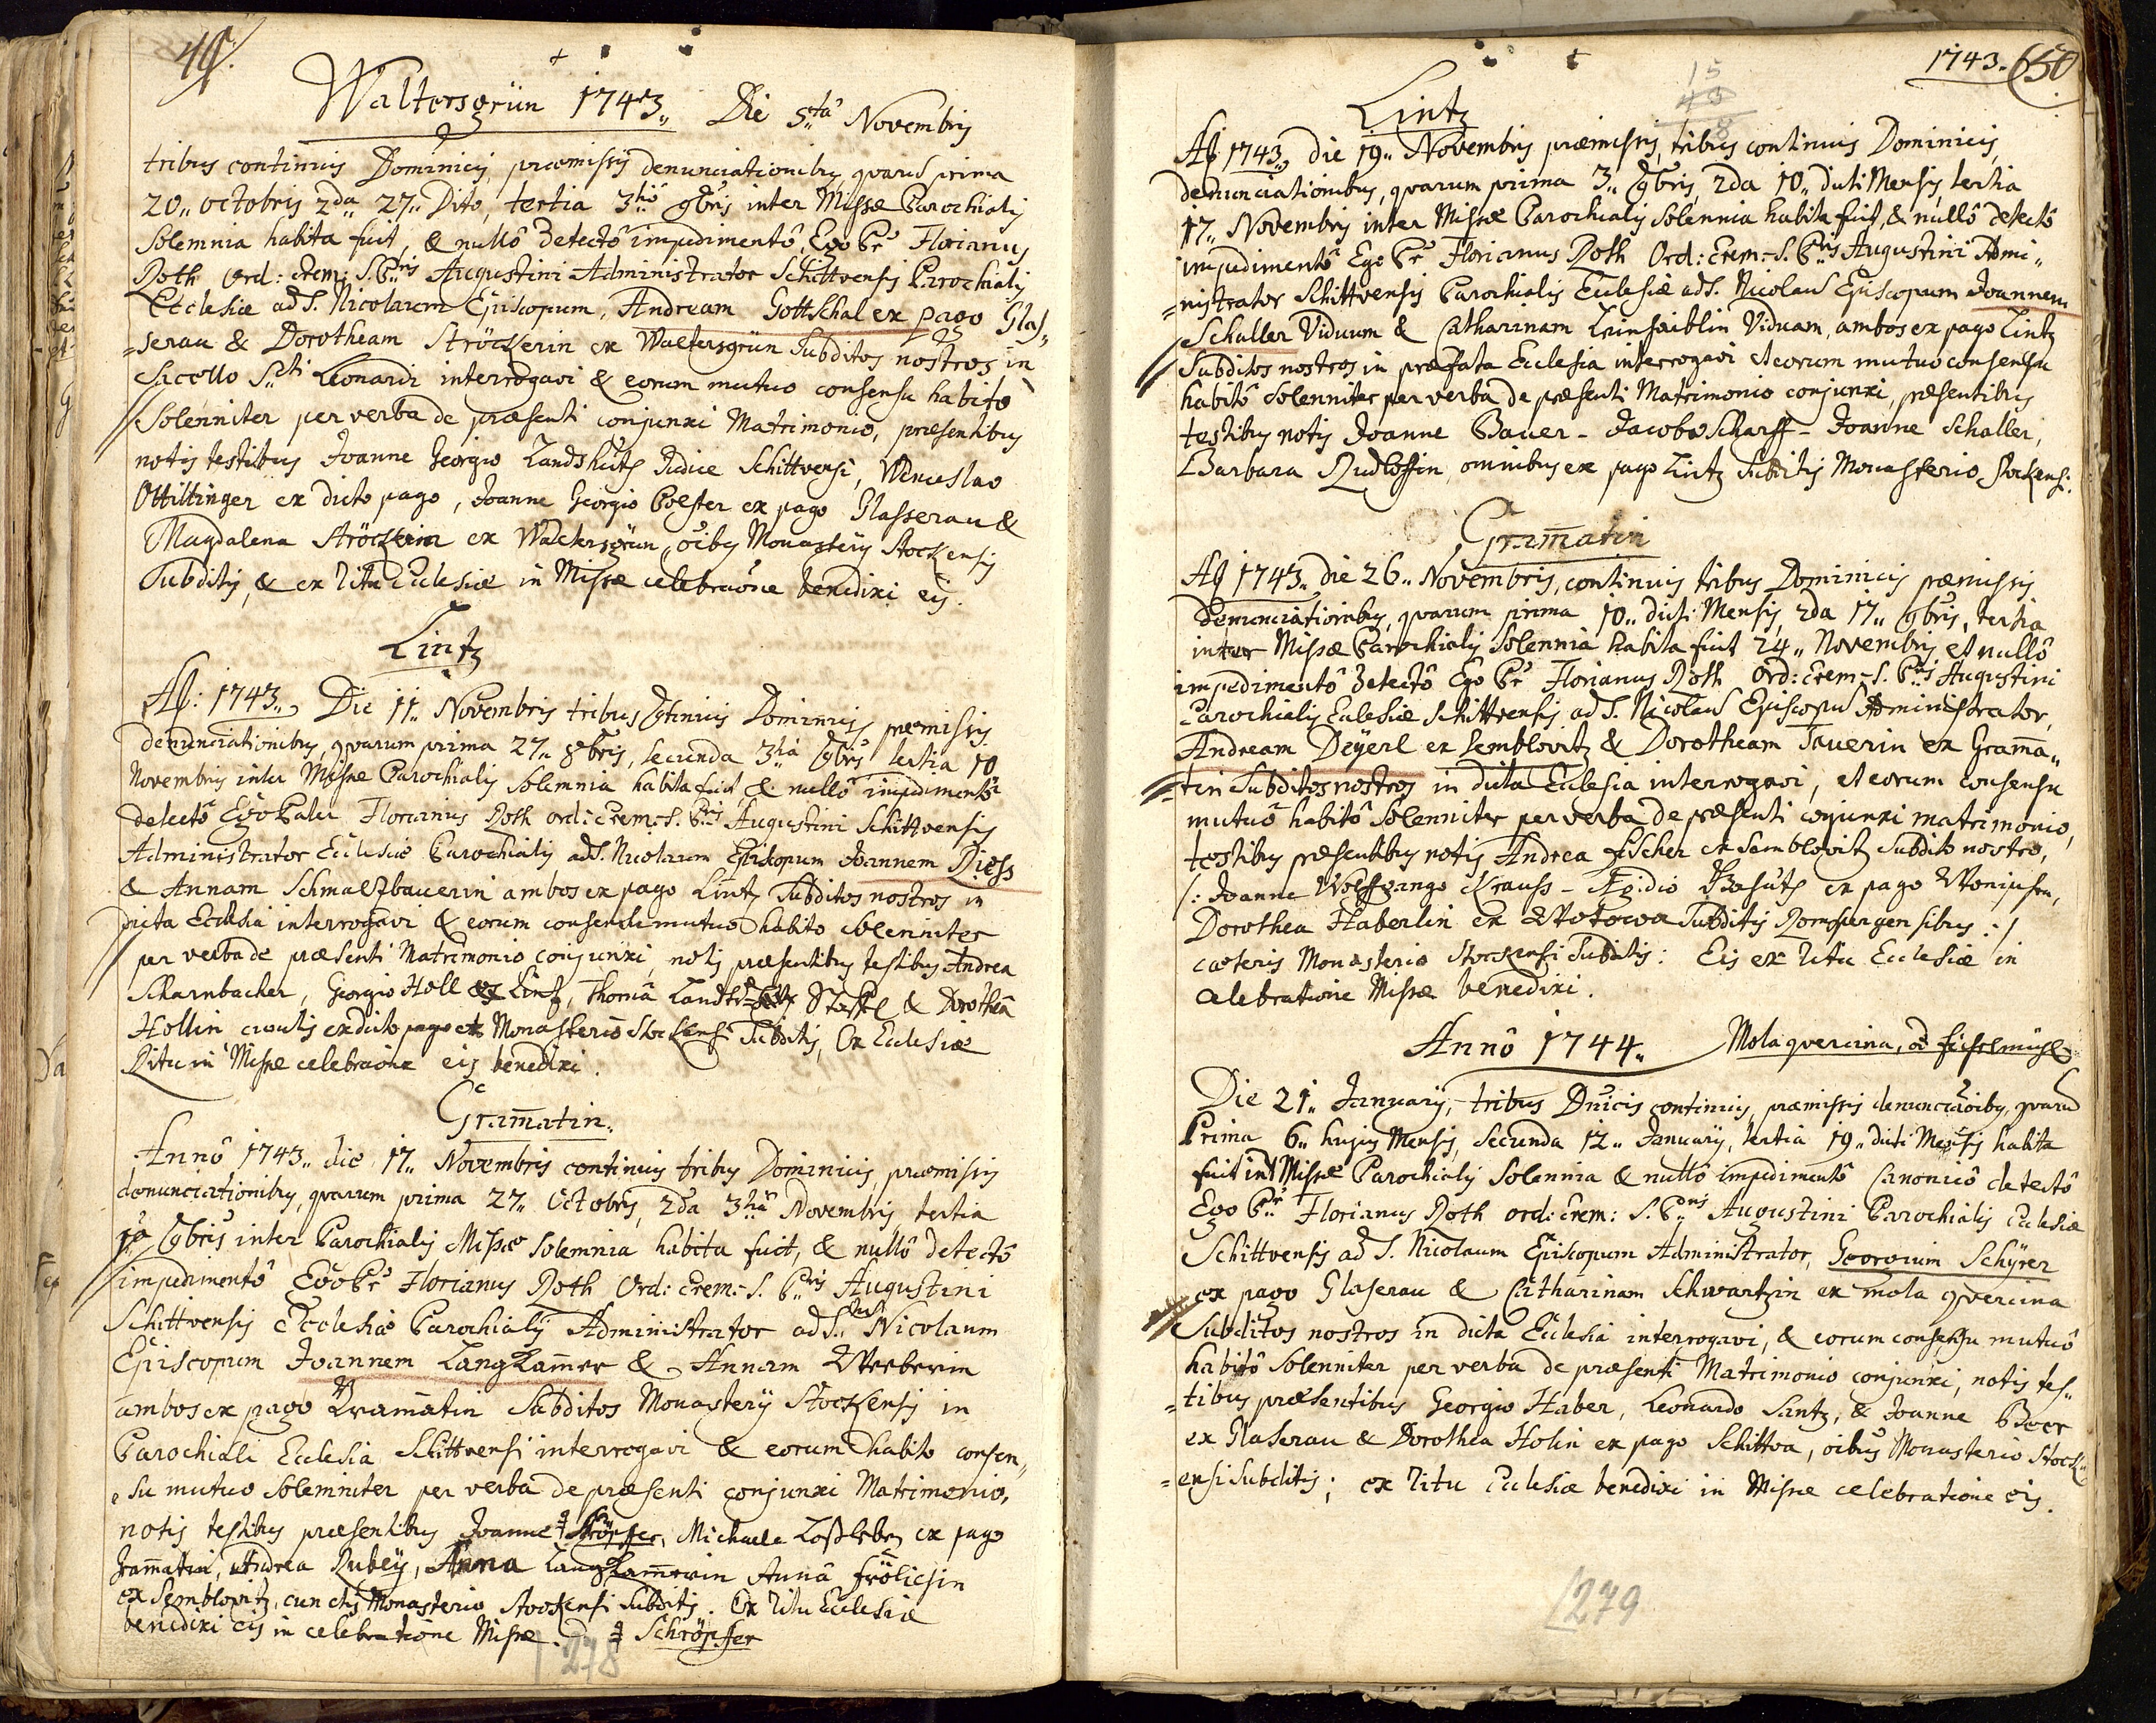 49.
Waltersgrün 1743,, Die 5ta Novembris
tribus continuis Dominicis, præmissis denunciationibus, quarũ prima
20,, octobris 2da 27,, Dito, tertia 3tiâ 9bris inter Missæ Parochialis
Solemnia habita fuit, & nullô detectô impedimentô, Ego Pr Florianus
Roth Ord: Erem: S. Pris Augustini Administrator Schittvensis Parochialis
Ecclesiæ ad S. Nicolaum Episcopum, Andream Gottschal ex pago Glas,,
=serau & Dorotheam Ströckerin ex Waltersgrün Subditos nostros in
Sacello Scti Leonardi interrogavi & eorum mutuo consensu habitô
Solenniter per verba de præsenti conjunxi Matrimonio, præsentibus
notis testibus Joanne Georgio Landshutz Judice Schittvensi, Wenceslao
Ottiltinger ex dicto pago, Joanne Georgio Poester ex pago Glasserau &
Magdalena Ströckerin ex Waltersgrün, oibus Monasterij Stockensis
Subditis, & ex Ritu Ecclesiæ in Missæ celebraõne benedixi eis.
Lintz
Aô: 1743,, Die 11,, Novembris tribus 9tinuis Dominicis præmissis
denunciationibus, quarum prima 27,, 8bris, Secunda 3tiâ 9bris tertia 10
Novembris inter Missæ Parochialis Solemnia habita fuit & nullô impedimentô
detectô Ego Pater Florianus Roth ord: Erem: S. Pris Augustini Schittvensis
Administrator Ecclesiæ Parochialis ad S. Nicolaum Episcopum Joannem Diess
& Annam Schmaltzbauerin ambos ex pago Lintz Subditos nostros in
dicta Ecclesia interrogavi & eorum consensu mutuo habito Solenniter
per verba de præsenti Matrimonio conjunxi, notis præsentibus testibus Andrea
Scharnbacher, Georgio Höll ex Lintz, Thomâ Stöckl & Dorotheâ
Hollin cunctis ex dicto pago et Monasterio Stockensi Subditis, Ex Ecclesiæ
Ritu in Missæ celebraõne eis benedixi.
Gram̃atin.
Annô 1743,, die 17,, Novembris continuis tribus Dominicis, præmissis
denunciationibus, quarum prima 27,, Octobris, 2da 3tiâ Novembris, tertia
10 9bris inter Parochialis Missæ Solemnia habita fuit, & nullô detectô
impedimentô Ego Pr Florianus Roth Ord: Erem: S. Pris Augustini
Schittvensis Ecclesiæ Parochialis Administrator ad S. Nicolaum
Episcopum Joannem Langham̃er & Annam Weeberin
ambos ex pago Gram̃atin Subditos Monasterij Stockensis in
Parochiali Ecclesia Schittvensi interrogavi & eorum habito consen,,
,,su mutuo Solemniter per verba de præsenti conjunxi Matrimonio,
notis testibus præsentibus Joanne Ströpffer, Michaele Lossleben ex pago
Gram̃atin, Andrea Rubey, Anna Langham̃erin Annâ Frölichin
ex Semblovitz, cunctis Monasterio Stockensi Subditis. Ex Ritu Ecclesiæ
benedixi eis in celebratione Missæ. Schröpffer
278
1743. 50.
15
43
8
Lintz
Aô 1743,, die 19,, Novembris præmissis, tribus continuis Dominicis,
denunciationibus, quarum prima 3,, 9bris, 2da 10,, dicti Mensis, tertia
17,, Novembris inter Missæ Parochialis Solennia habita fuit, & nullô detectô
impedimentô Ego Pr Florianus Roth Ord: Erem: S. Pris Augustini Admi,,
=nistrator Schittvensis Parochialis Ecclesiæ ad S. Nicolaũ Episcopum Joannem
Schaller Viduum & Catharinam Viduam, ambos ex pago Lintz
Subditos nostros in præfata Ecclesia interrogavi et eorum mutuo consensu
habitô Solenniter per verba de præsenti Matrimonio conjunxi, præsentibus
testibus notis Joanne Bauer - Jacobo Scharff - Joanne Schaller,
Barbara Rudloffin, omnibus ex pago Lintz Subditis Monasterio Stockensi.
Gram̃atin
Aô 1743,, die 26,, Novembris, continuis tribus Dominicis præmissis
denunciationibus, quarum prima 10,, dicti Mensis, 2da 17,, 9bris, tertia
inter Missæ Parochialis Solennia habita fuit 24,, Novembris et nullô
impedimentô detectô Ego Pr Florianus Roth Ord: Erem: S. Pris Augustini
Parochialis Ecclesiæ Schittvensis ad S. Nicolaũ Episcopũ Administrator,
Andream Deyerl ex Semblovitz & Dorotheam Tauerin ex Gram̃a,,
=tin Subditos nostros in dicta Ecclesia interrogavi, et eorum consensu
mutuô habitô Solenniter per verba de præsenti conjunxi matrimonio,
testibus præsentibus notis Andrea Fischer ex Semblovitz subdito nostro,
/: Joanne Wolffgango Krauss - Ægidio ex pago
Dorothea Haberlin ex Wotowa Subditis Rompergensibus :/
cæteris Monasterio Stockensi Subditis: Eis ex Ritu Ecclesiæ in
celebratione Missæ benedixi.
Annô 1744,, Mola quercina, od Eichelmühl
Die 21,, Januarij, tribus Dnicis continuis, præmissis denunciaõibus, quarũ
Prima 6,, hujus Mensis, Secunda 12,, Januarij, tertia 19,, dicti Mensis habita
fuit int Missæ Parochialis Solennia & nullô impedimentô Canonicô detectô
Ego Pr Florianus Roth ord: Erem: S. Pris Augustini Parochialis Ecclesiæ
Schittvensis ad S. Nicolaum Episcopum Administrator, Georgium Schyrer
ex pago Glaserau & Catharinam Schwartzin ex mola quercina
Subditos nostros in dicta Ecclesia interrogavi, & eorum consensu mutuô
habitô Solenniter per verba de præsenti Matrimonio conjunxi, notis tes,,
=tibus præsentibus Georgio Haber, Leonardo Santz, & Joanne Beer
ex Glaserau & Dorothea Holin ex pago Schittva, oibus Monasterio Stock,,
=ensi Subditis; ex Ritu Ecclesiæ benedixi in Missæ celebratione eis.
279